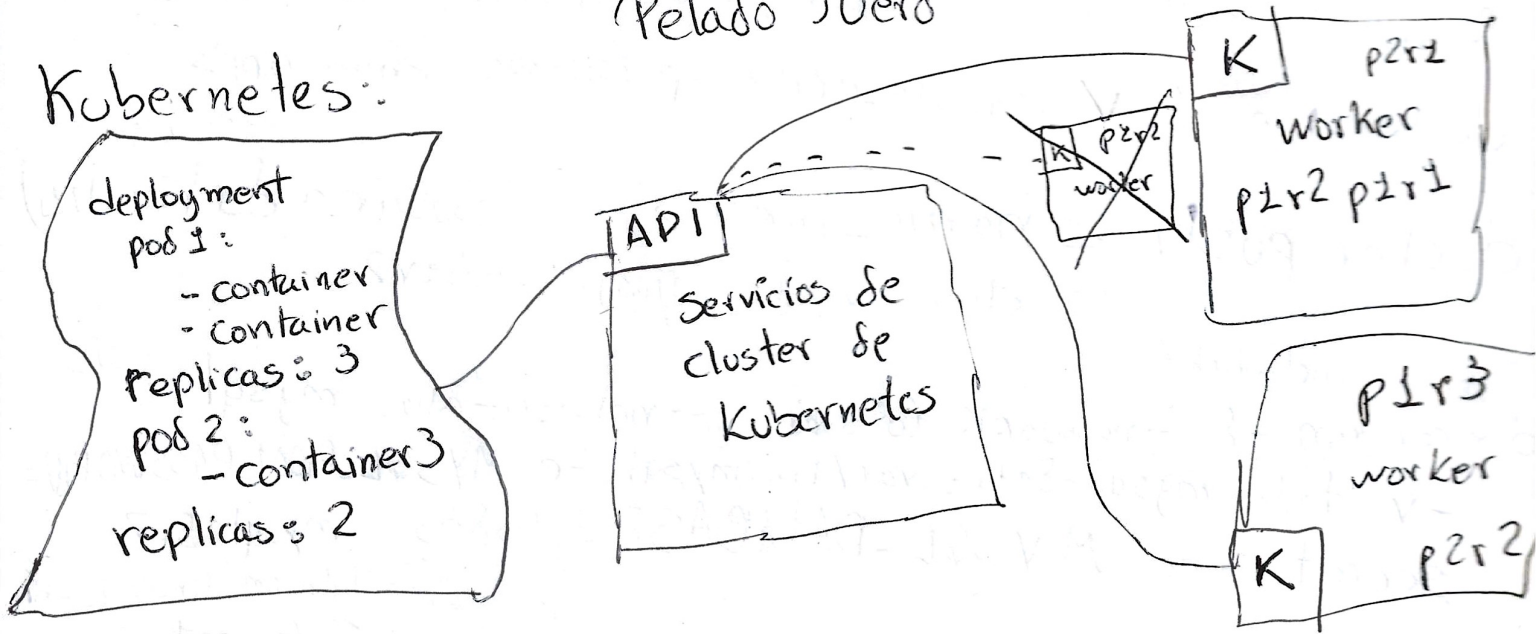 Pelado
Kubernetes:
deployment
pod 1:
- container
- container
replicas: 3
pod 2:
- container3
replicas: 2
API
Servicios de
cluster de
Kubernetes
K
worker
K p2r1
worker
p1r2 p1r1
p1r3
worker
K p2r2